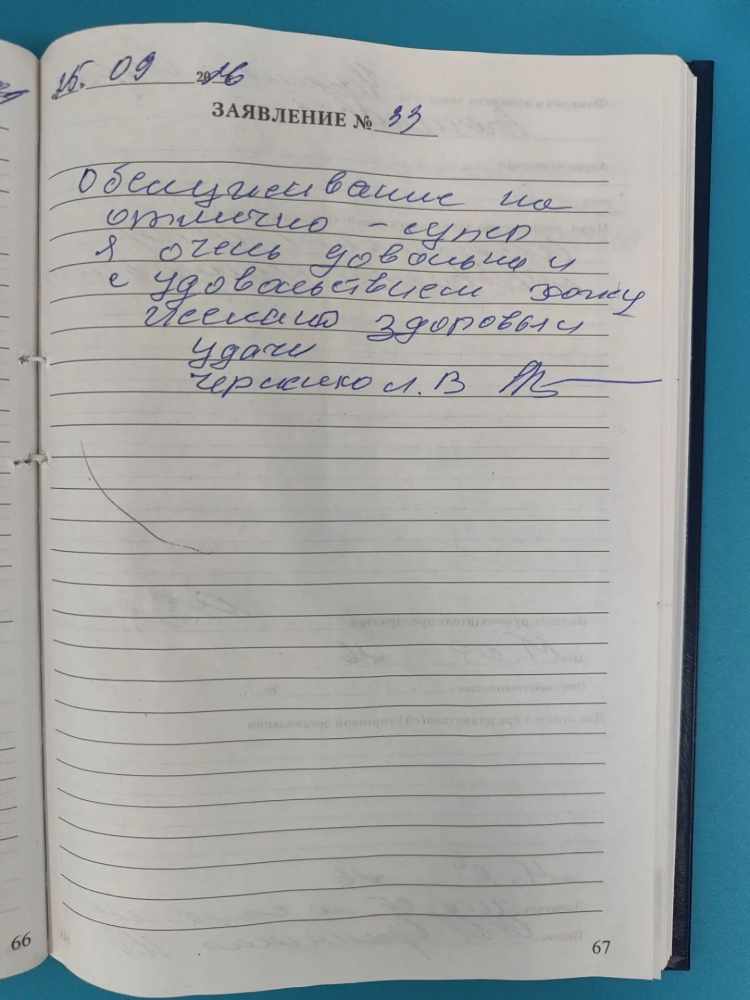 25. 09 2016
ЗАЯВЛЕНИЕ № 33
Обслуживание на
отлично - супер
я очень довольна и
с удовольствием хожу
Желаю здоровья и
удачи
Л. В
66
67